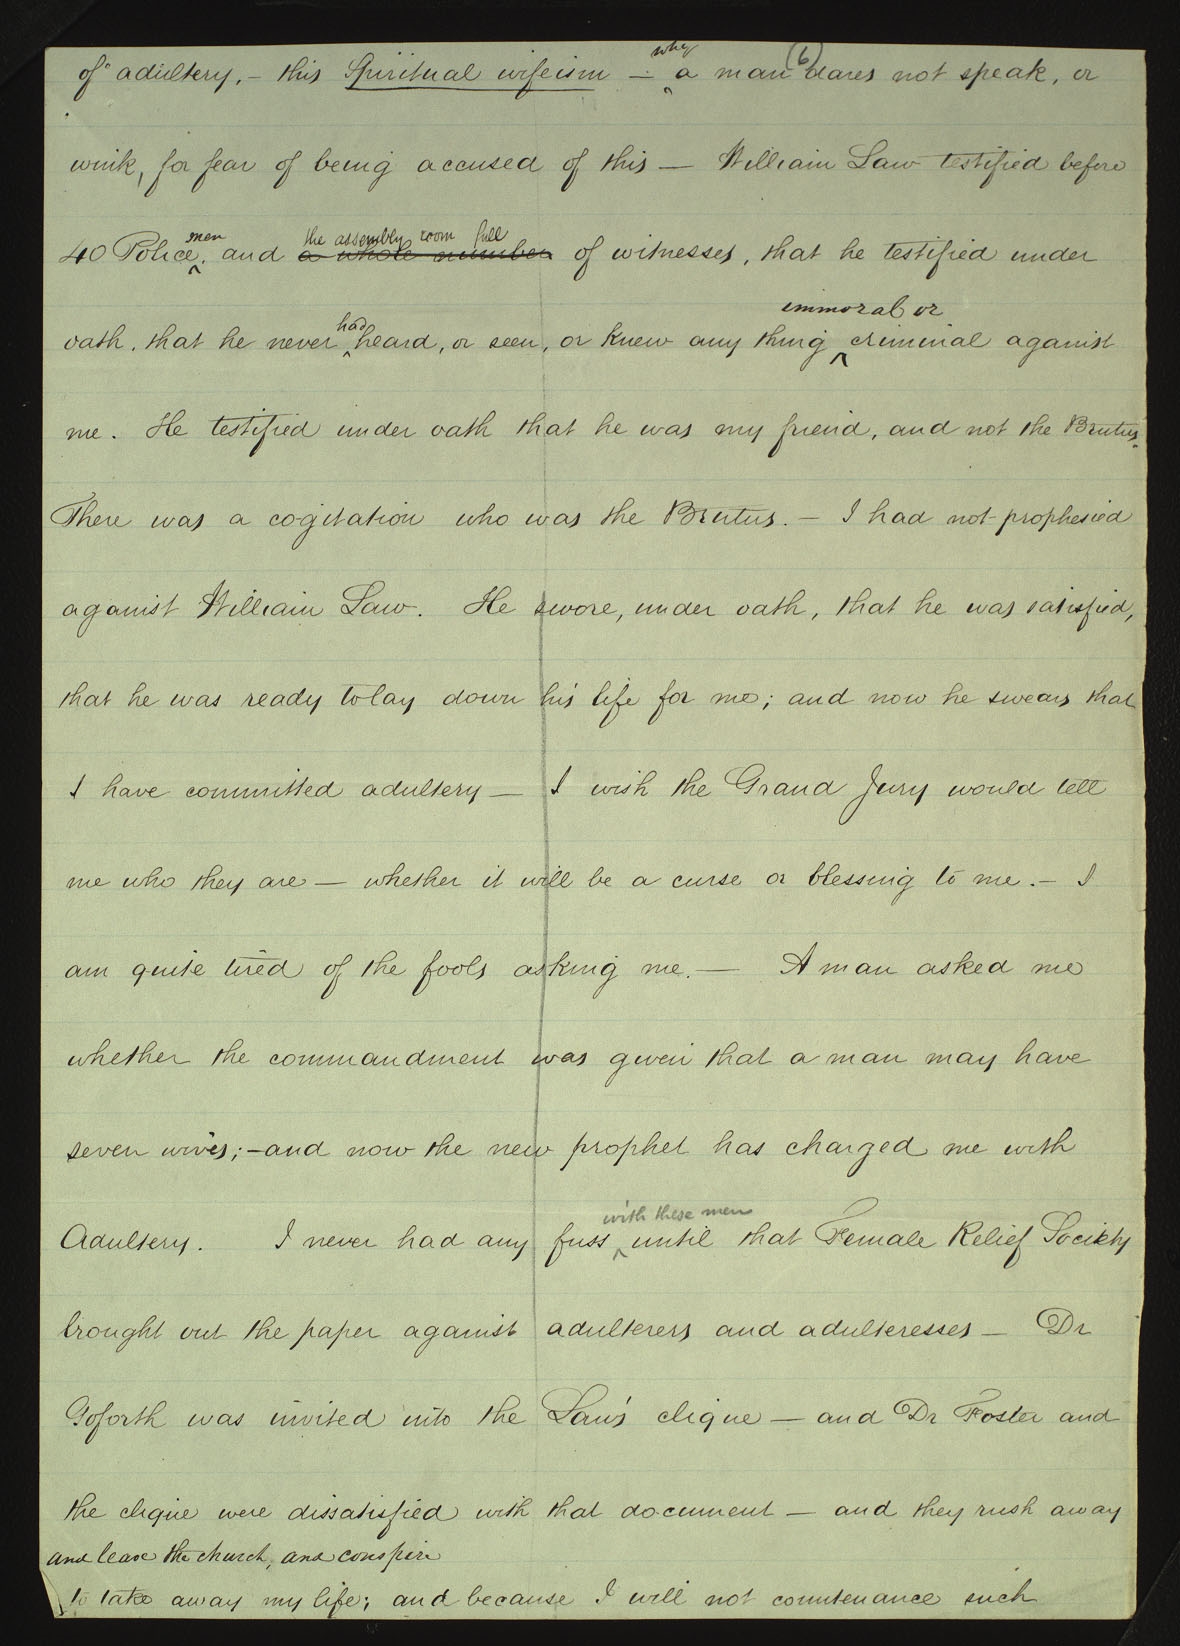 (6)
why
of adultery, – this Spiritual wifeism – a man dares not speak, or
wink, for fear of being accused of this — William Law testified before
men the assembly room full
40 Police, and a whole number of witnesses, that he testified under
immoral or
had
oath, that he never heard, or seen, or knew any thing criminal against
me. He testified under oath that he was my friend, and not the Brutus.
There was a cogitation who was the Brutus. – I had not prophesied
against William Law. He swore, under oath, that he was satisfied,
that he was ready to lay down his life for me; and now he swears that
I have committed adultery — I wish the Grand Jury would tell
me who they are — whether it will be a curse or blessing to me. – I
am quite tired of the fools asking me. — A man asked me
whether the commandment was given that a man may have
seven wives; – and now the new prophet has charged me with
with these men
Adultery. I never had any fuss until that Female Relief Society
brought out the paper against adulterers and adulteresses — Dr
Goforth was invited into the Law's clique — and Dr Foster and
the clique were dissatisfied with that document — and they rush away
and leave the church, and conspire
to take away my life; and because I will not countenance such